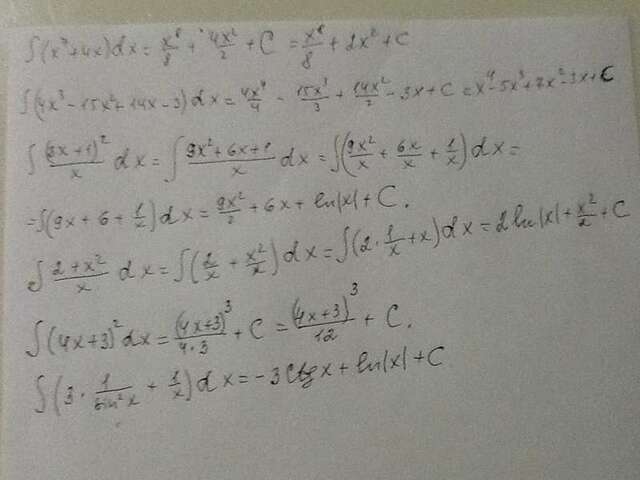 ∫(x⁷+4x)dx = x⁸/8 + 4x²/2 + C = x⁸/8 + 2x² + C
∫(4x³-15x²+14x-3)dx = 4x⁴/4 - 15x³/3 + 14x²/2 - 3x + C = x⁴-5x³+7x²-3x+C
∫(3x+1)²/x dx = ∫(9x²+6x+1)/x dx = ∫(9x²/x + 6x/x + 1/x)dx =
= ∫(9x + 6 + 1/x)dx = 9x²/2 + 6x + ln|x| + C.
∫(2+x²)/x dx = ∫(2/x + x²/x)dx = ∫(2·1/x + x)dx = 2ln|x| + x²/2 + C
∫(4x+3)²dx = (4x+3)³/(4·3) + C = (4x+3)³/12 + C.
∫(3·1/sin²x + 1/x)dx = -3ctgx + ln|x| + C